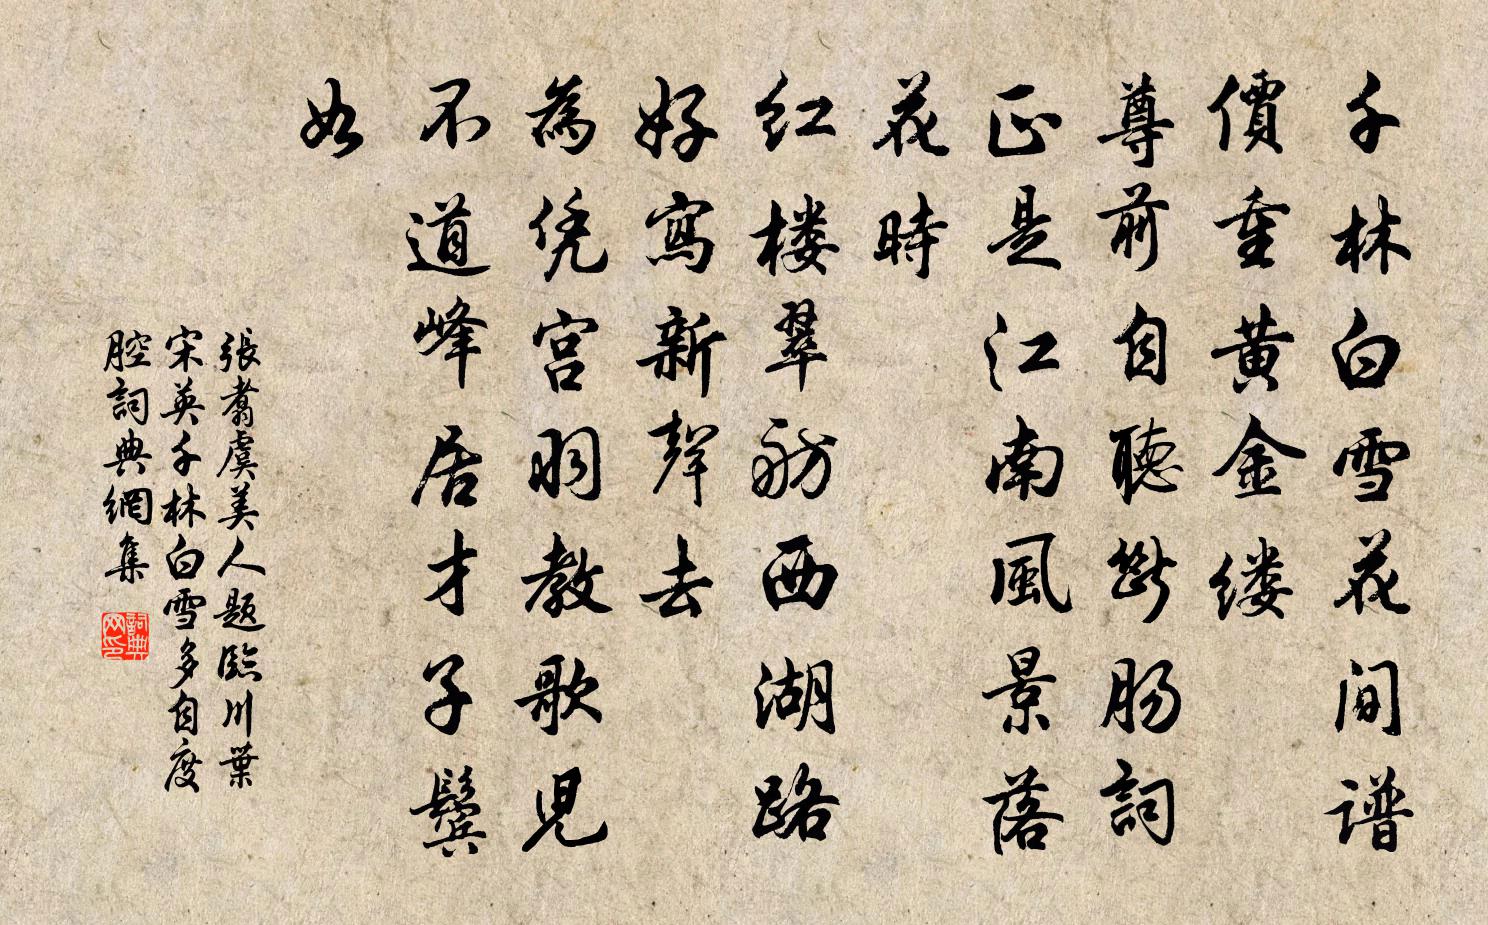 千林白雪花间谱
價重黄金缕
尊前自聴断肠詞
正是江南風景落
花時
红楼翠舫西湖路
好寫新聲去
為凭宫羽教歌児
不道峰居才子鬓
如
張翥虞美人题臨川葉
宋英千林白雪多自度
腔詞典網集
詞典
网印